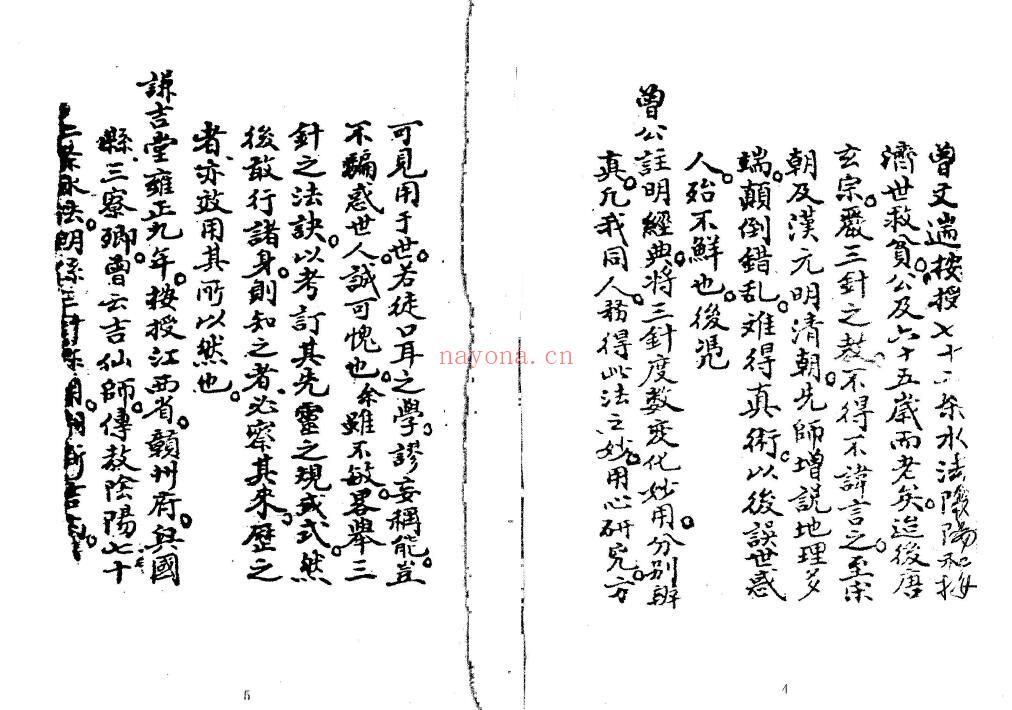 曾文遄按授七十二条水法陰陽和按
濟世救貧公及六十五歲而老矣迨後唐
玄宗嚴三針之教不得不諱言之至宋
朝及漢元明清朝先師增説地理多
端顛倒錯乱难得真術以後誤世惑
人殆不鮮也後凭
曾公註明經典將三針度数变化妙用分別辨
真凡我同人務得此法之妙用心研究方
4
可見用于世若徒口耳之學謬妄稱能豈
不騙惑世人誠可愧也余雖不敏畧舉三
針之法訣以考訂其先靈之現或式然
後敢行諸身則知之者必察其来歷之
者亦效用其所以然也
謙吉堂雍正九年按授江西省贛州府興國
縣三寮鄉曾云吉仙師傳教陰陽七十
二条水法明
5
nayona.cn